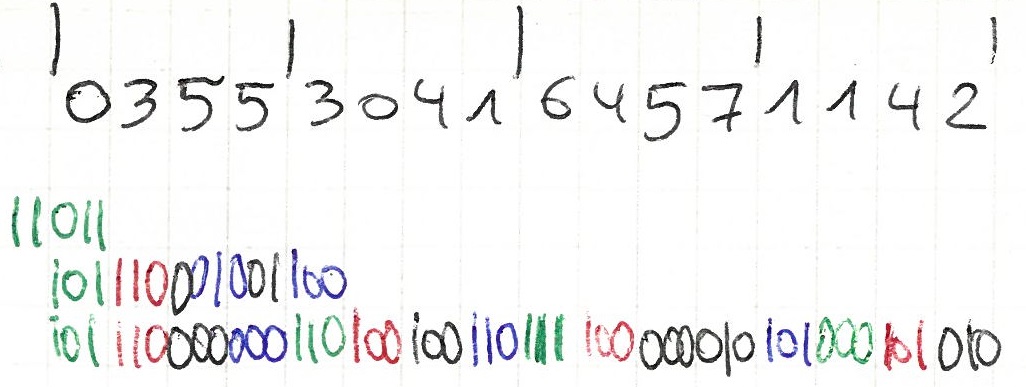 0355304164571142
11011
101110001001100
101110000000110100100110111100000010101000101010